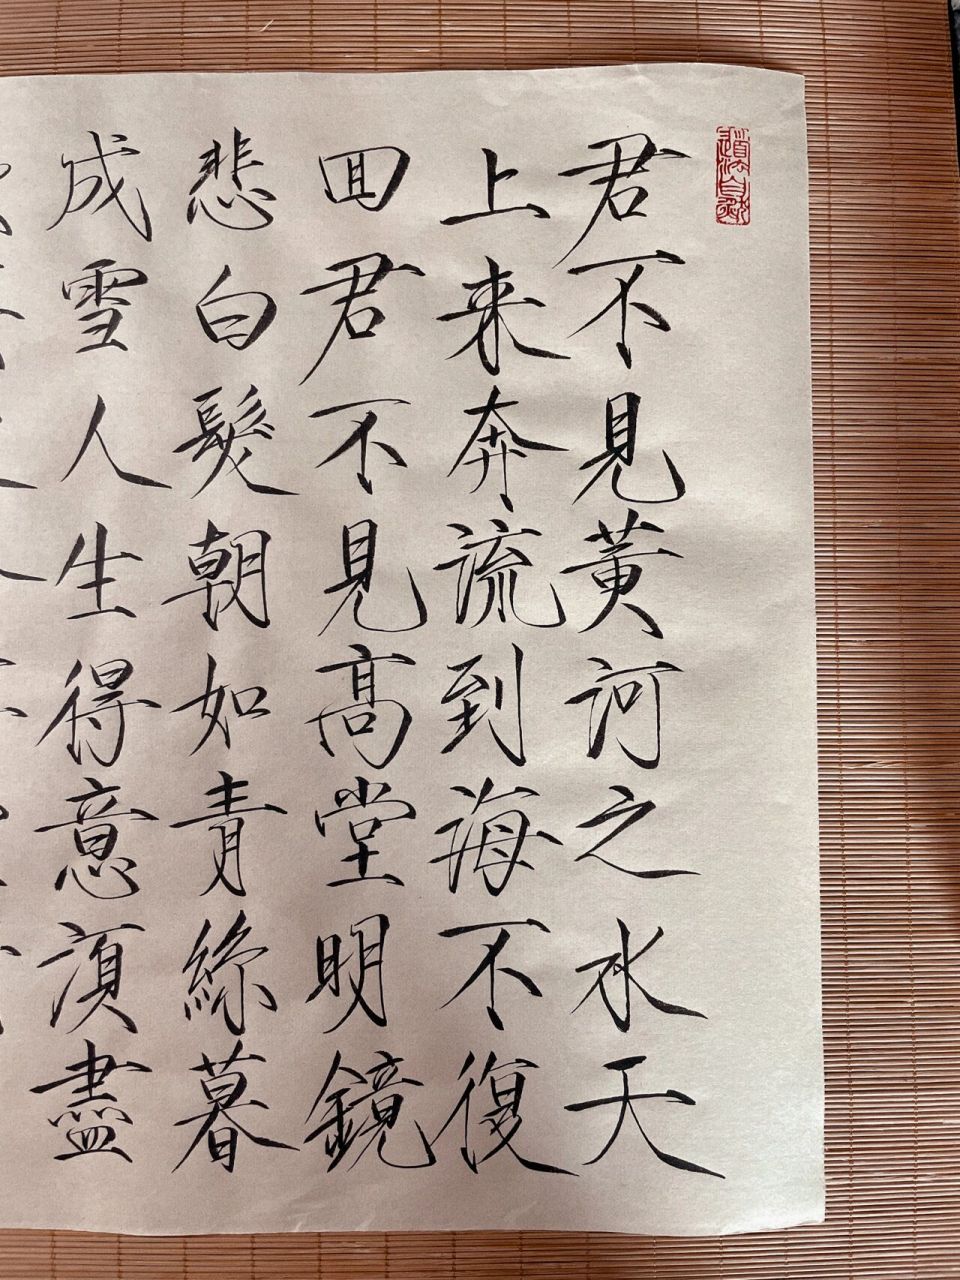 道法自然
君不見黃河之水天
上来奔流到海不復
回君不見高堂明鏡
悲白髮朝如青絲暮
成雪人生得意須盡